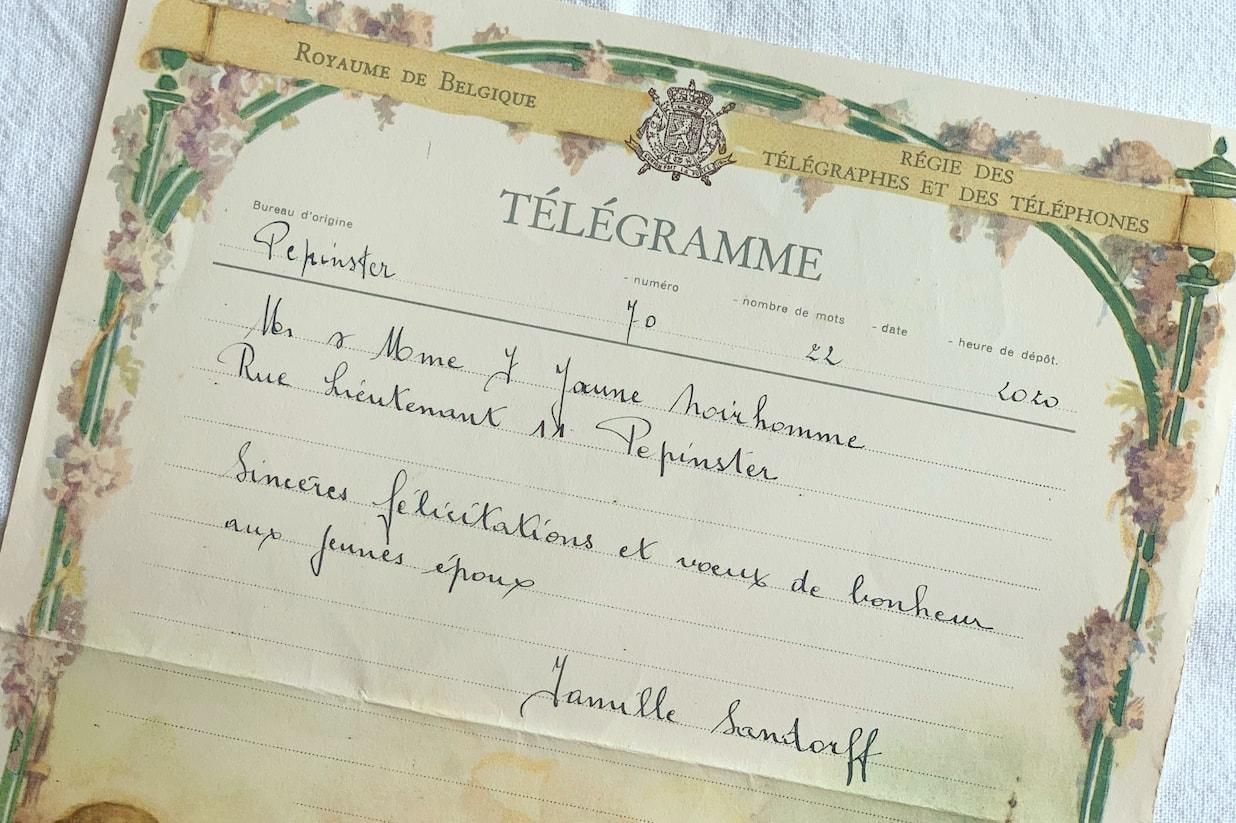 ROYAUME DE BELGIQUE
RÉGIE DES
TÉLÉGRAPHES ET DES TÉLÉPHONES
TÉLÉGRAMME
Bureau d'origine - numéro - nombre de mots - date - heure de dépôt.
Pepinster 70 22 2020
Mr & Mme J Jaune Noirhomme
Rue Lieutenant 11 Pepinster
Sincères félicitations et vœux de bonheur
aux jeunes époux
Famille Sandorff